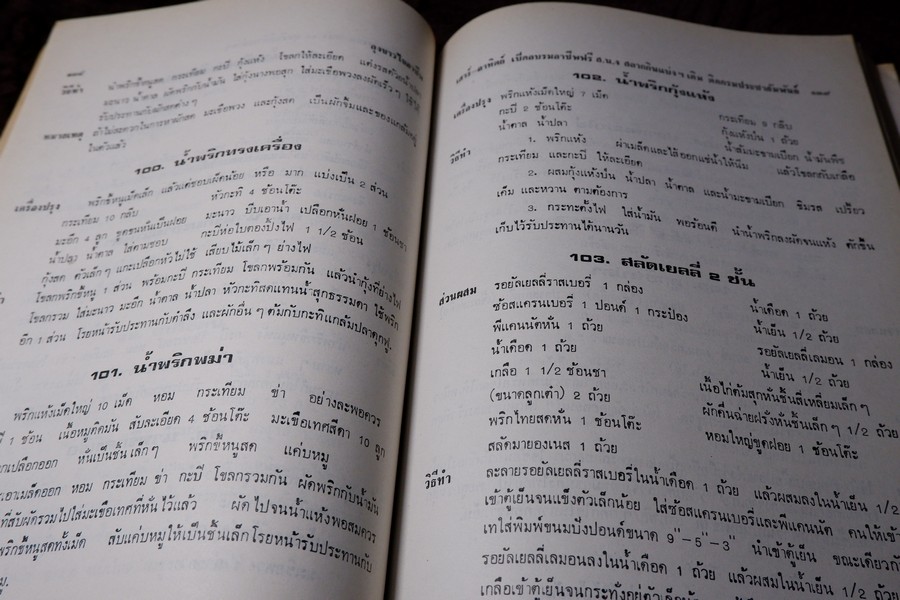 ๒๑๘
วิธีทำ น้ำพริกขี้หนูสด กระเทียม กะปิ กุ้งแห้ง โขลกให้ละเอียด
มะนาว น้ำตาล
รับประทานกับผักสดต่างๆ
หมายเหตุ ถ้าไม่สะดวกในการหาผักสด มะเขือพวง และกุ้งสด เป็นผักจิ้มและของแกล้มอยู่
ในตัวแล้ว
100. น้ำพริกทรงเครื่อง
เครื่องปรุง พริกขี้หนูเม็ดเล็ก แล้วแต่ชอบเผ็ดน้อย หรือ มาก แบ่งเป็น 2 ส่วน
กระเทียม 10 กลีบ หัวกะทิ 4 ช้อนโต๊ะ
มะอึก 4 ลูก ขูดขนหั่นเป็นฝอย มะนาว บีบเอาน้ำ เปลือกหั่นฝอย 1 ช้อนชา
น้ำปลา น้ำตาล ใส่ตามชอบ กะปิห่อใบตองปิ้งไฟ 1 1/2 ช้อน
กุ้งสด ตัวเล็กๆ แกะเปลือกหัวไม่ใช้ เสียบไม้เล็กๆ ย่างไฟ
โขลกพริกขี้หนู 1 ส่วน พร้อมกะปิ กระเทียม โขลกพร้อมกัน แล้วนำกุ้งที่ย่างไฟ
โขลกรวม ใส่มะนาว มะอึก น้ำตาล น้ำปลา หัวกะทิสดแทนน้ำสุกธรรมดา ใช้พริก
อีก 1 ส่วน โรยหน้ารับประทานกับตำลึง และผักอื่นๆ ต้มกับกะทิแกล้มปลาดุกฟู
101. น้ำพริกพม่า
พริกแห้งเม็ดใหญ่ 10 เม็ด หอม กระเทียม ข่า อย่างละพอควร
1 ช้อน เนื้อหมูติดมัน สับละเอียด 4 ช้อนโต๊ะ มะเขือเทศสีดา 10 ลูก
เปลือกออก หั่นเป็นชิ้นเล็กๆ พริกขี้หนูสด แคบหมู
เอาเมล็ดออก หอม กระเทียม ข่า กะปิ โขลกรวมกัน ผัดพริกกับน้ำมัน
ที่สับผัดรวมไปใส่มะเขือเทศที่หั่นไว้แล้ว ผัดไปจนน้ำแห้งพอสมควร
พริกขี้หนูสดทั้งเม็ด สับแคบหมูให้เป็นชิ้นเล็กโรยหน้ารับประทานกับ
102. น้ำพริกกุ้งแห้ง
เครื่องปรุง พริกแห้งเม็ดใหญ่ 7 เม็ด กระเทียม 9 กลีบ
กะปิ 2 ช้อนโต๊ะ กุ้งแห้งป่น 1 ถ้วย
น้ำตาล น้ำปลา น้ำส้มมะขามเปียก น้ำมันพืช
วิธีทำ 1. พริกแห้ง ผ่าเมล็ดและไส้ออกแช่น้ำให้นิ่ม แล้วโขลกกับเกลือ
กระเทียม และกะปิ ให้ละเอียด
2. ผสมกุ้งแห้งป่น น้ำปลา น้ำตาล และน้ำมะขามเปียก ชิมรส เปรี้ยว
เค็ม และหวาน ตามต้องการ
3. กระทะตั้งไฟ ใส่น้ำมัน พอร้อนดี นำน้ำพริกลงผัดจนแห้ง ตักขึ้น
เก็บไว้รับประทานได้นานวัน
103. สลัดเยลลี่ 2 ชั้น
ส่วนผสม รอยัลเยลลี่ราสเบอรี่ 1 กล่อง น้ำเดือด 1 ถ้วย
ซ้อสแครนเบอรี่ 1 ปอนด์ 1 กระป๋อง น้ำเย็น 1/2 ถ้วย
พีแคนนัตหั่น 1 ถ้วย รอยัลเยลลี่เลมอน 1 กล่อง
น้ำเดือด 1 ถ้วย น้ำเย็น 1/2 ถ้วย
เกลือ 1 1/2 ช้อนชา เนื้อไก่ต้มสุกหั่นชิ้นสี่เหลี่ยมเล็กๆ
(ขนาดลูกเต๋า) 2 ถ้วย ผักคึ่นฉ่ายฝรั่งหั่นชิ้นเล็กๆ 1/2 ถ้วย
พริกไทยสดหั่น 1 ช้อนโต๊ะ หอมใหญ่ขูดฝอย 1 ช้อนโต๊ะ
สลัดมายองเนส 1 ถ้วย
วิธีทำ ละลายรอยัลเยลลี่ราสเบอรี่ในน้ำเดือด 1 ถ้วย แล้วผสมลงในน้ำเย็น 1/2
เข้าตู้เย็นจนแข็งตัวเล็กน้อย ใส่ซ้อสแครนเบอรี่และพีแคนนัต คนให้เข้า
เทใส่พิมพ์ขนมปังปอนด์ขนาด 9"-5"-3" นำเข้าตู้เย็น ขณะเดียวกัน
รอยัลเยลลี่เลมอนลงในน้ำเดือด 1 ถ้วย แล้วผสมในน้ำเย็น 1/2
เกลือเข้าตู้เย็นจนกระทั่งอยู่ตัวเล็กน้อย